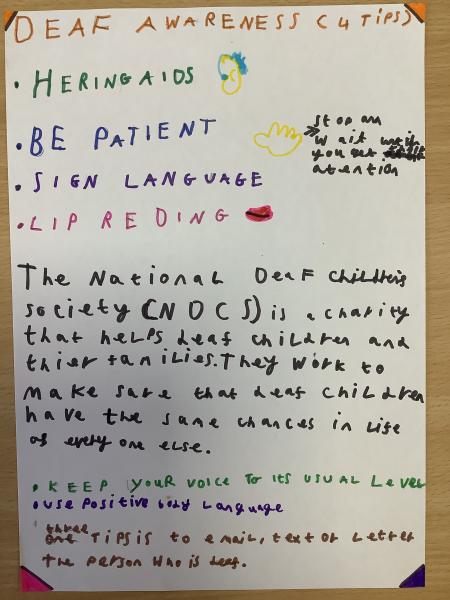 DEAF AWARENESS (4 TIPS)
• HERINGAIDS
• BE PATIENT
stop an
wait until
you get
atention
• SIGN LANGUAGE
• LIP REDING
The National Deaf Children's
society (NDCS) is a charity
that helps deaf children and
thier families. They work to
make sure that deaf children
have the same chances in life
as every one else.
• KEEP YOUR VOICE TO ITS USUAL Level
• use Positive body Language
three
TIPS is to email, text or Letter
the person who is deaf.